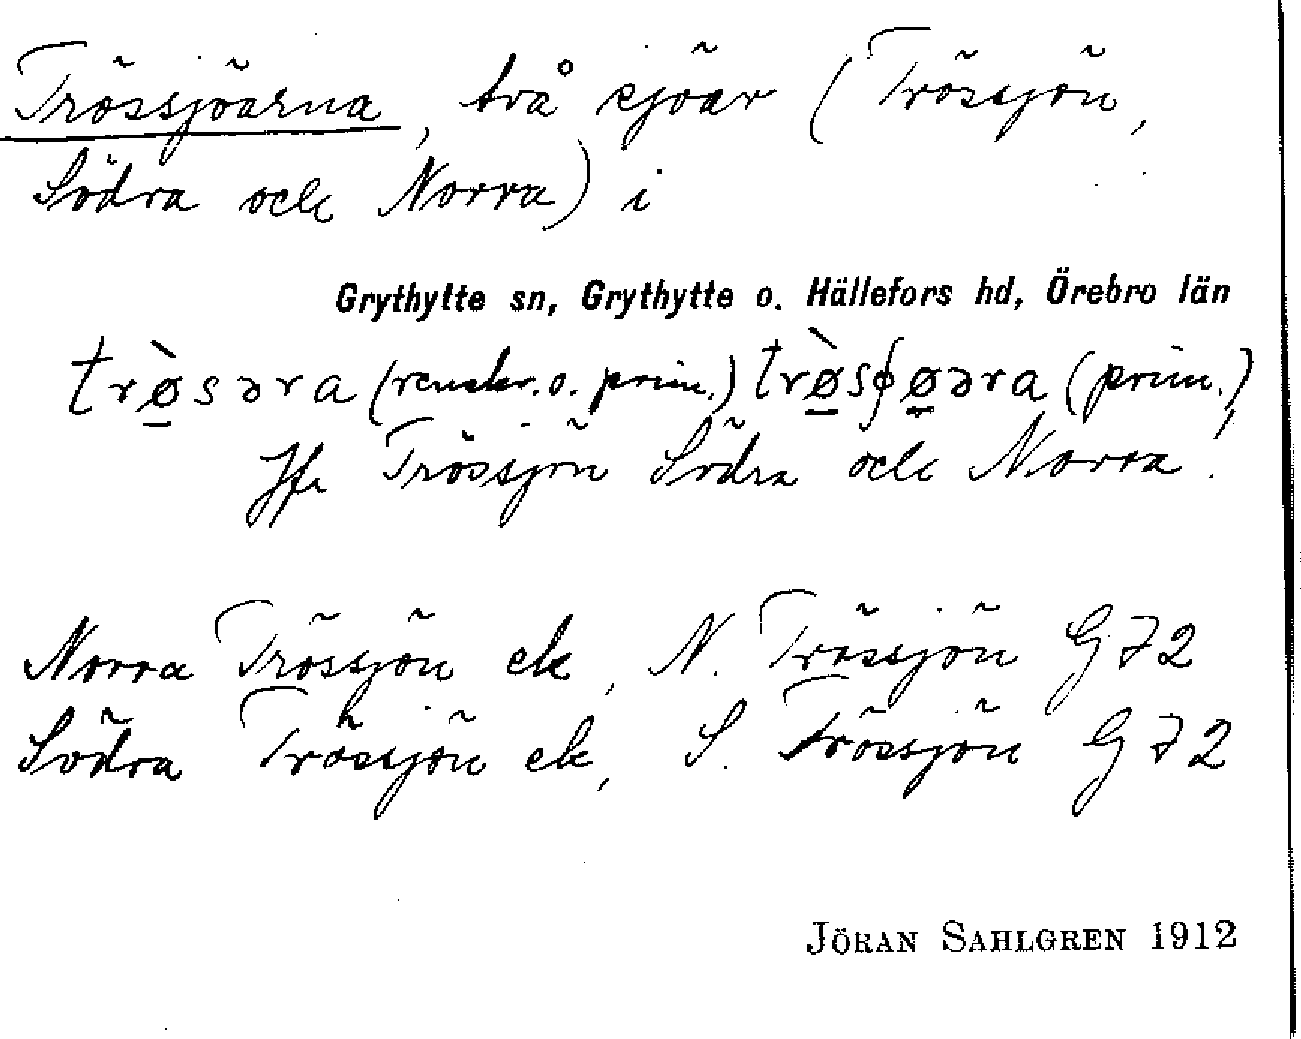 Trössjöarna, två sjöar (Trössjön,
Södra och Norra) i
Grythytte sn, Grythytte o. Hällefors hd, Örebro län
trø̠̀səra (renskr. o. prim.) trø̠̀sɸø̠əra (prim.)
Jfr Trössjön Södra och Norra!
Norra Trössjön ek, N. Trössjön G72
Södra Trössjön ek, S. Trössjön G72
JÖRAN SAHLGREN 1912